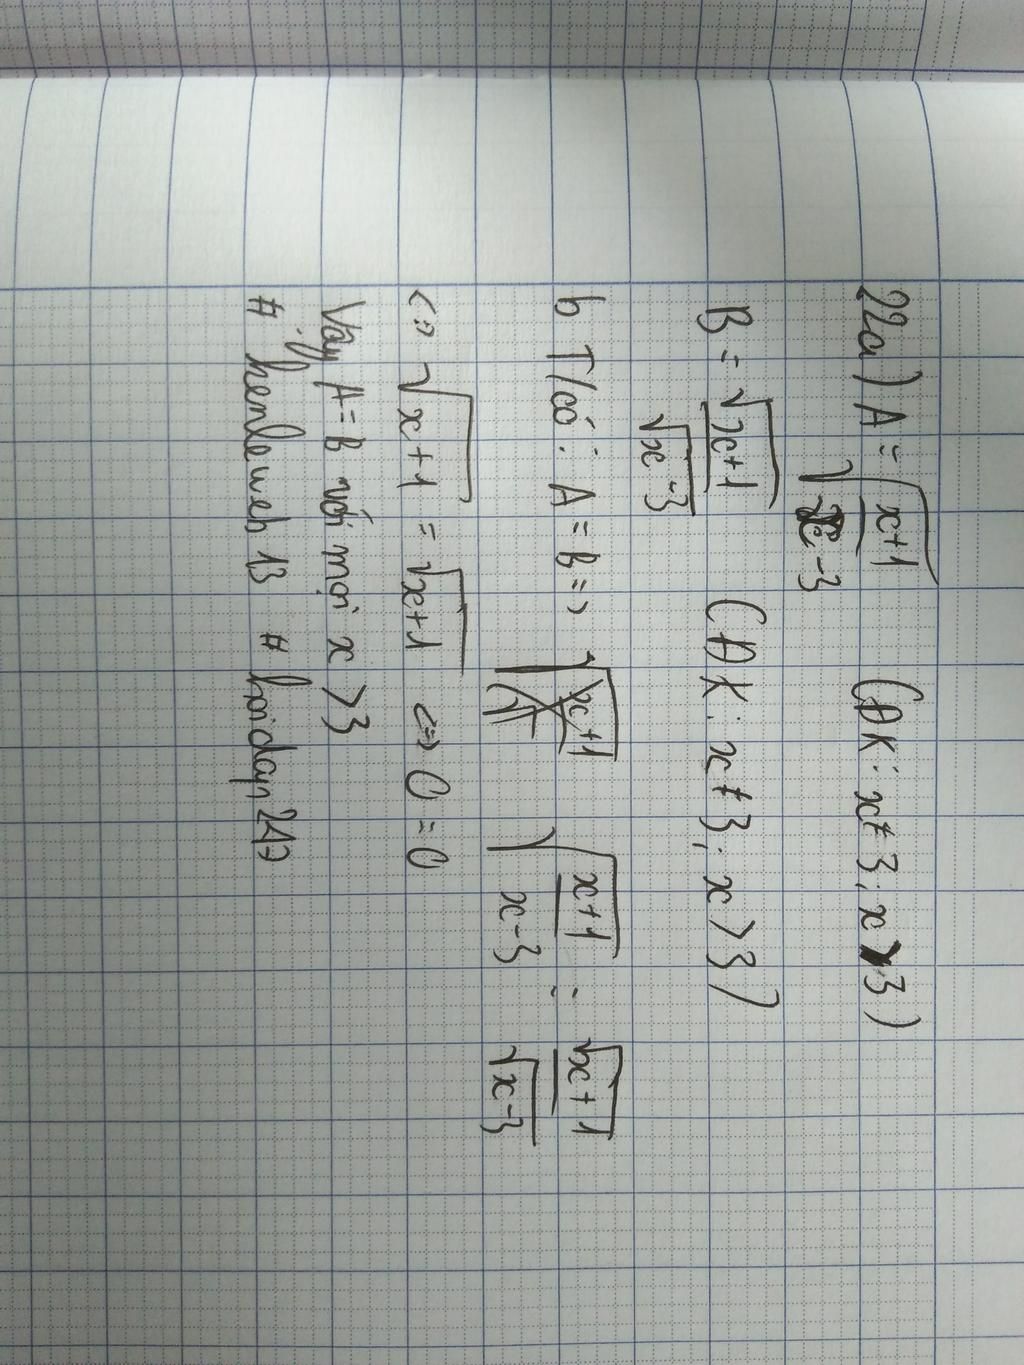 22a) A = √(x+1 / x-3) (ĐK: x ≠ 3; x > 3)
B = √x+1 / √x-3 (ĐK: x ≠ 3; x > 3)
b T/có: A = B => √(x+1 / x-3) = √x+1 / √x-3
<=> √x+1 = √x+1 <=> 0 = 0
Vậy A = B với mọi x > 3
# kenleweh13 # hoidap247